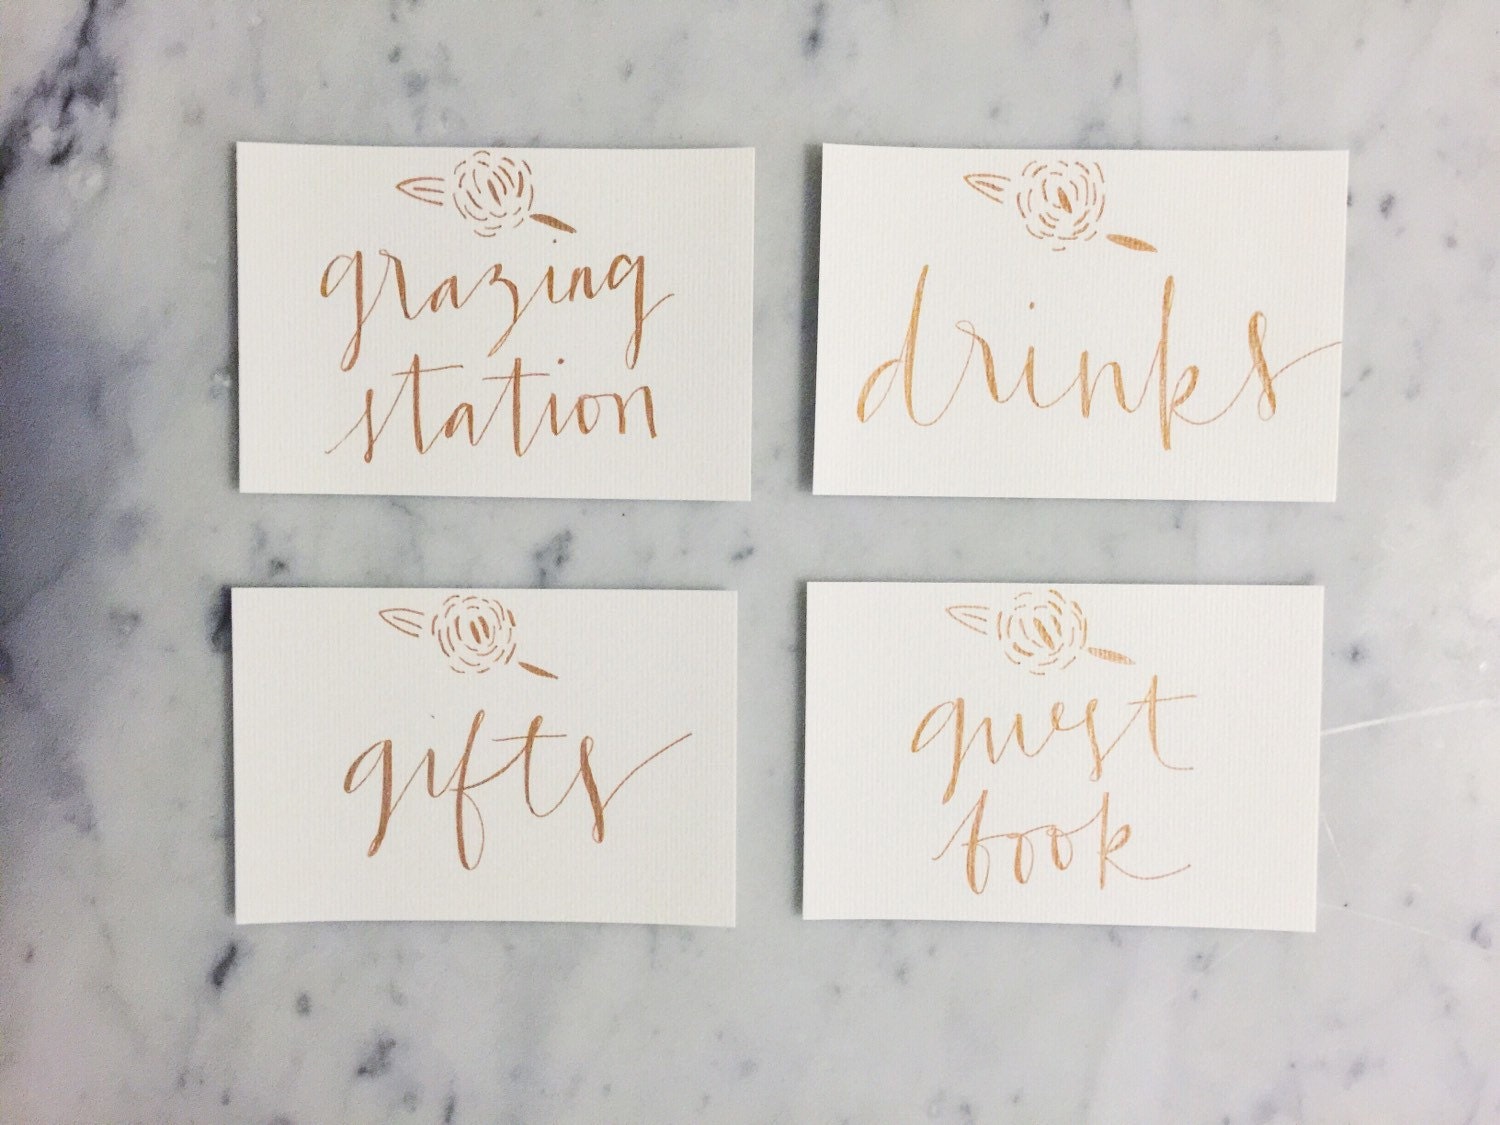 grazing
station
drinks
gifts
guest
book